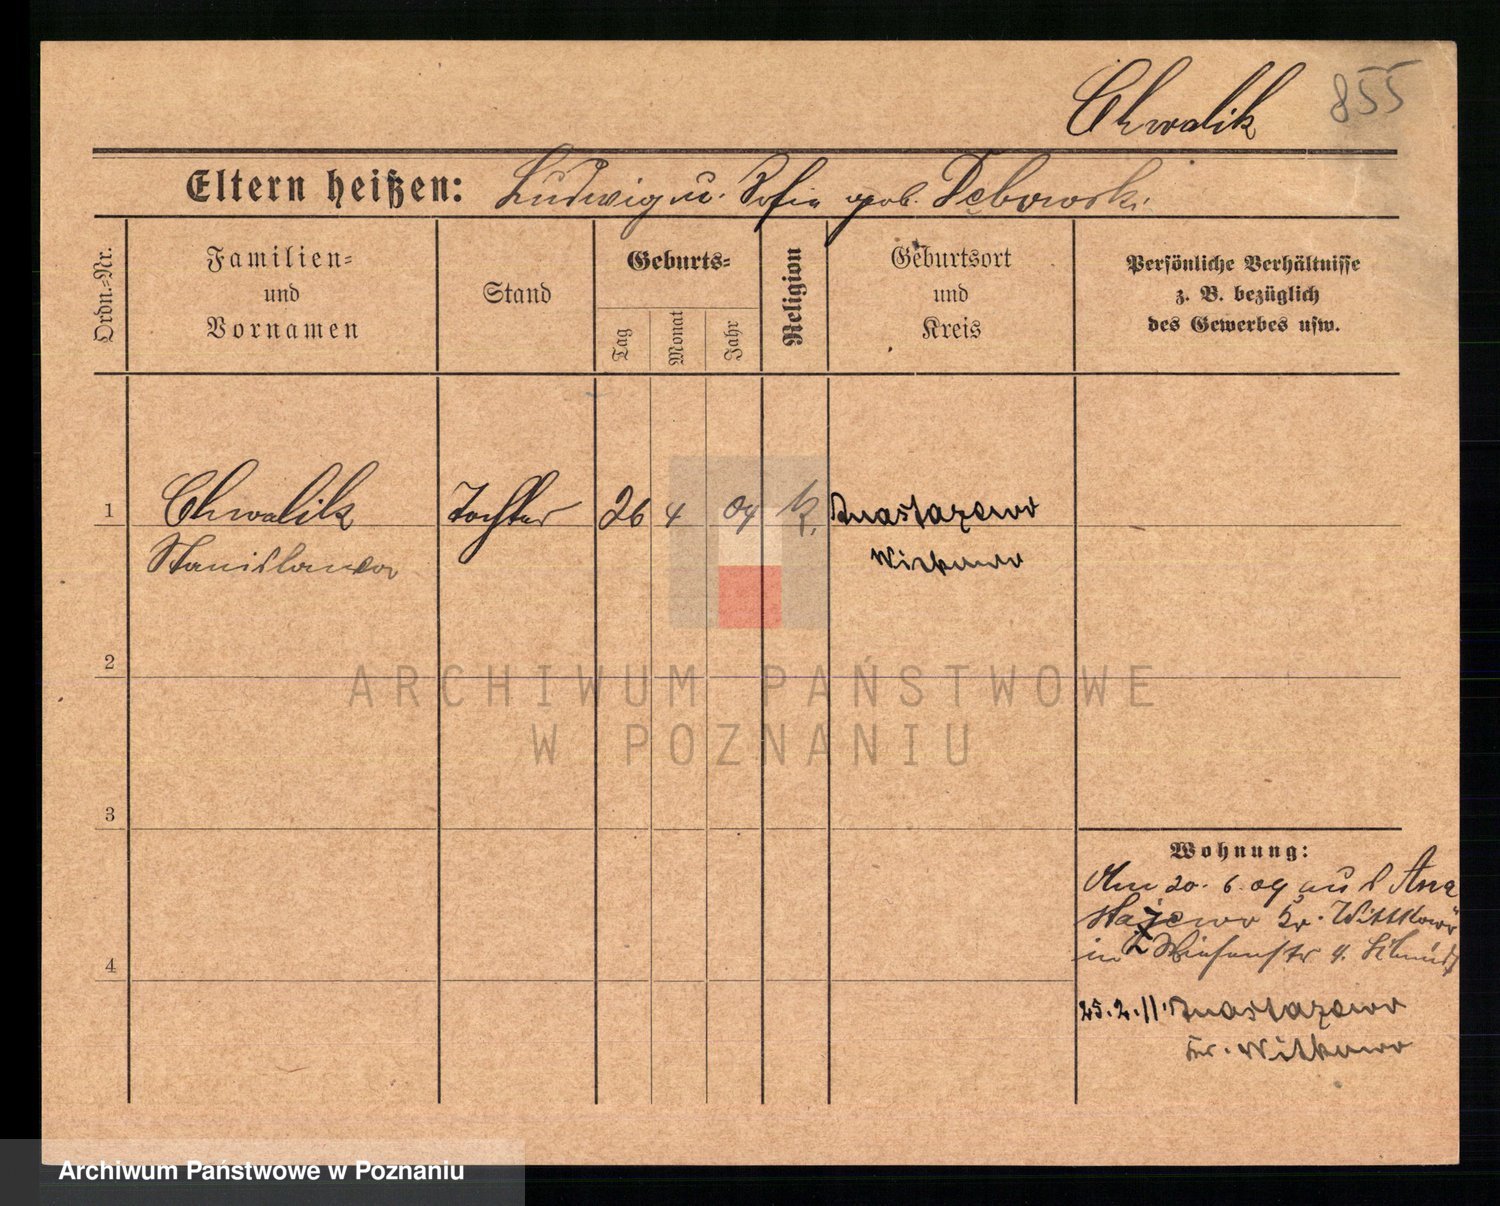 Chwalik 855
Eltern heißen: Ludwig u. Sofia geb. Dębowski
Ordn.-Nr.
Familien-
und
Vornamen
Stand
Geburts-
Tag
Monat
Jahr
Religion
Geburtsort
und
Kreis
Persönliche Verhältnisse
z. B. bezüglich
des Gewerbes usw.
1 Chwalik Tochter 26 4 04 k. Anastazewo
Stanislawa Witkowo
2
3
4
Wohnung:
Am 20. 6. 09 aus Ana
stazewo Kr. Wittkowo
in Wiesenstr 4.
25.2.11. Anastazewo
Kr. Witkowo
ARCHIWUM PAŃSTWOWE
W POZNANIU
Archiwum Państwowe w Poznaniu